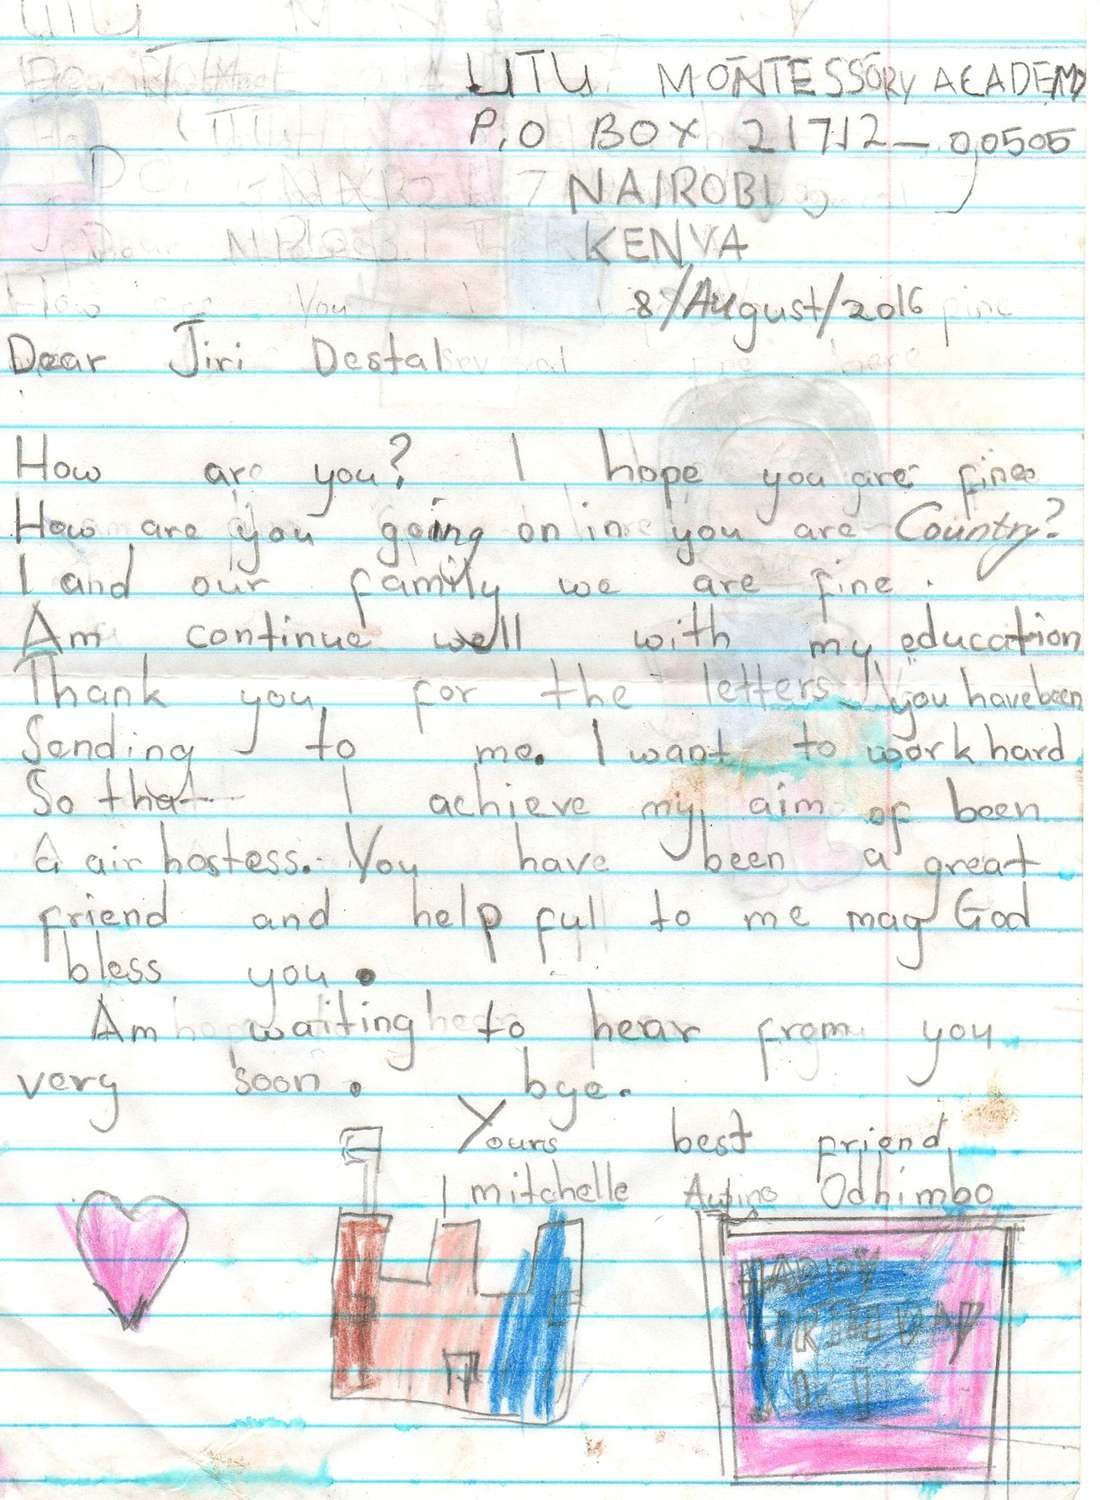 UTU MONTESSORY ACADEMY
P.O BOX 21712-00505
NAIROBI
KENYA
8/August/2016
Dear Jiri Destal
How are you? I hope you are fine
How are you going on in you are Country?
I and our family we are fine.
Am continue well with my education
Thank you for the letters you have been
Sending to me. I want to work hard
So that I achieve my aim of been
a air hostess. You have been a great
friend and help full to me may God
bless you.
Am waiting to hear from you
very soon. bye.
Yours best friend
mitchelle Odhimbo
HAPPY
BIRTHDAY